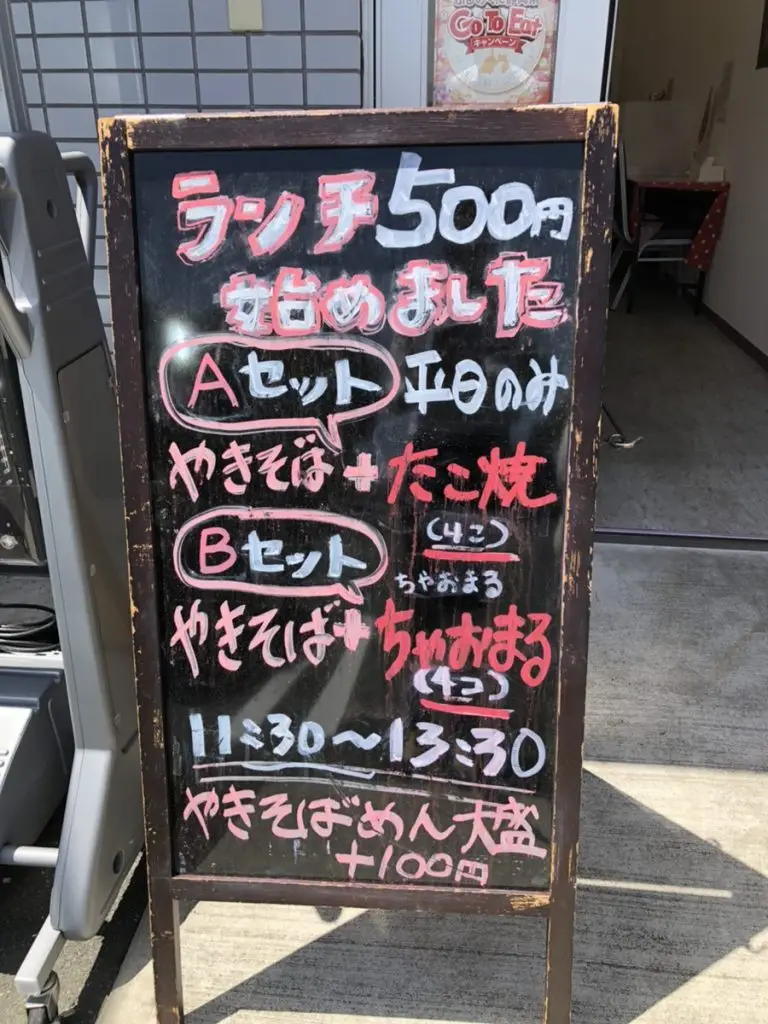 Go To Eat
キャンペーン
ランチ500円
始めました
Aセット 平日のみ
やきそば+たこ焼
(4こ)
Bセット
ちゃおまる
やきそば+ちゃおまる
(4コ)
11:30〜13:30
やきそばめん大盛
+100円